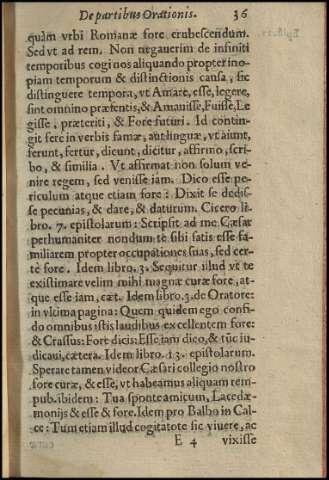 De partibus Orationis. 36
quàm vrbi Romanæ fore erubescendum.
Sed vt ad rem. Non negauerim de infiniti
temporibus cogi nos aliquando propter ino-
piam temporum & distinctionis causa, sic
distinguere tempora, vt Amare, esse, legere,
sint omnino præsentis, & Amauisse, Fuisse, Le
gisse, præteriti, & Fore futuri. Id contin-
git fere in verbis famæ, aut linguæ, vt aiunt,
ferunt, fertur, dicunt, dicitur, affirmo, scri-
bo, & similia. Vt affirmat non solum ve-
nire regem, sed venisse iam. Dico esse pe-
riculum atque etiam fore: Dixit se dedis-
se pecunias, & dare, & daturum. Cicero li-
bro. 7. epistolarum: Scripsit ad me Cæsar
perhumaniter nondum te sibi satis esse fa-
miliarem propter occupationes suas, sed cer-
tè fore. Idem libro. 3. Sequitur illud vt te
existimare velim mihi magnæ curæ fore, at-
que esse iam, cæt. Idem libro. 3. de Oratore:
in vltima pagina: Quem quidem ego confi-
do omnibus istis laudibus excellentem fore:
& Crassus: Fort dicis: Esse iam dico, & tūc iu-
dicaui, cætera. Idem libro. 13. epistolarum.
Sperare tamen videor Cæsari collegio nostro
fore curæ, & esse, vt habeamus aliquam rem-
pub. ibidem: Tua sponte amicum, Lacedæ-
monijs & esse & fore. Idem pro Balbo in Cal-
ce: Tum etiam illud cogitatote sic viuere, ac
E 4 vixisse